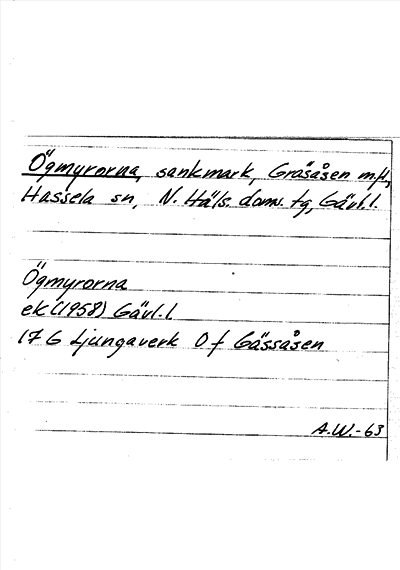 Ögmyrorna, sankmark, Gräsåsen m.fl,
Hassela sn, N. Häls. doms. tg, Gävl.l.
Ögmyrorna
ek (1958) Gävl.l.
17 G Ljungaverk 0 f Gässåsen
A.W.-63